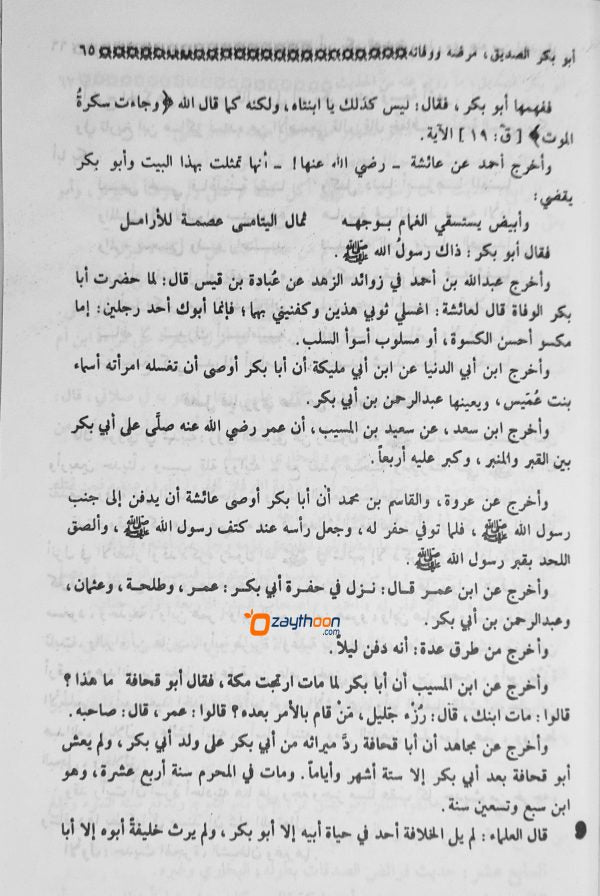 أبو بكر الصديق، مرضه ووفاته ٦٥
ففهمها أبو بكر، فقال: ليس كذلك يا ابنتاه، ولكنه كما قال الله ﴿وجاءت سكرةُ
الموت﴾ [ق: ١٩] الآية.
وأخرج أحمد عن عائشة ـ رضي الله عنها! ـ أنها تمثلت بهذا البيت وأبو بكر
يقضي:
وأبيض يستسقي الغمام بوجهه ثمال اليتامى عصمة للأرامل
فقال أبو بكر: ذاك رسولُ الله ﷺ.
وأخرج عبدالله بن أحمد في زوائد الزهد عن عُبادة بن قيس قال: لما حضرت أبا
بكر الوفاة قال لعائشة: اغسلي ثوبي هذين وكفنيني بهما؛ فإنما أبوك أحد رجلين: إما
مكسو أحسن الكسوة، أو مسلوب أسوأ السلب.
وأخرج ابن أبي الدنيا عن ابن أبي مليكة أن أبا بكر أوصى أن تغسله امرأته أسماء
بنت عُمَيس، ويعينها عبدالرحمن بن أبي بكر.
وأخرج ابن سعد، عن سعيد بن المسيب، أن عمر رضي الله عنه صلَّى على أبي بكر
بين القبر والمنبر، وكبر عليه أربعاً.
وأخرج عن عروة، والقاسم بن محمد أن أبا بكر أوصى عائشة أن يدفن إلى جنب
رسول الله ﷺ، فلما توفي حفر له، وجعل رأسه عند كتف رسول الله ﷺ، وألصق
اللحد بقبر رسول الله ﷺ.
وأخرج عن ابن عمر قال: نزل في حفرة أبي بكر: عمر، وطلحة، وعثمان،
وعبدالرحمن بن أبي بكر.
Ozaythoon.com
وأخرج من طرق عدة: أنه دفن ليلاً.
وأخرج عن ابن المسيب أن أبا بكر لما مات ارتجت مكة، فقال أبو قحافة ما هذا؟
قالوا: مات ابنك، قال: رُزْء جَليل، مَنْ قام بالأمر بعده؟ قالوا: عمر، قال: صاحبه.
وأخرج عن مجاهد أن أبا قحافة ردَّ ميراثه من أبي بكر على ولد أبي بكر، ولم يعش
أبو قحافة بعد أبي بكر إلا ستة أشهر وأياماً. ومات في المحرم سنة أربع عشرة، وهو
ابن سبع وتسعين سنة.
قال العلماء: لم يل الخلافة أحد في حياة أبيه إلا أبو بكر، ولم يرث خليفةً أبوه إلا أبا